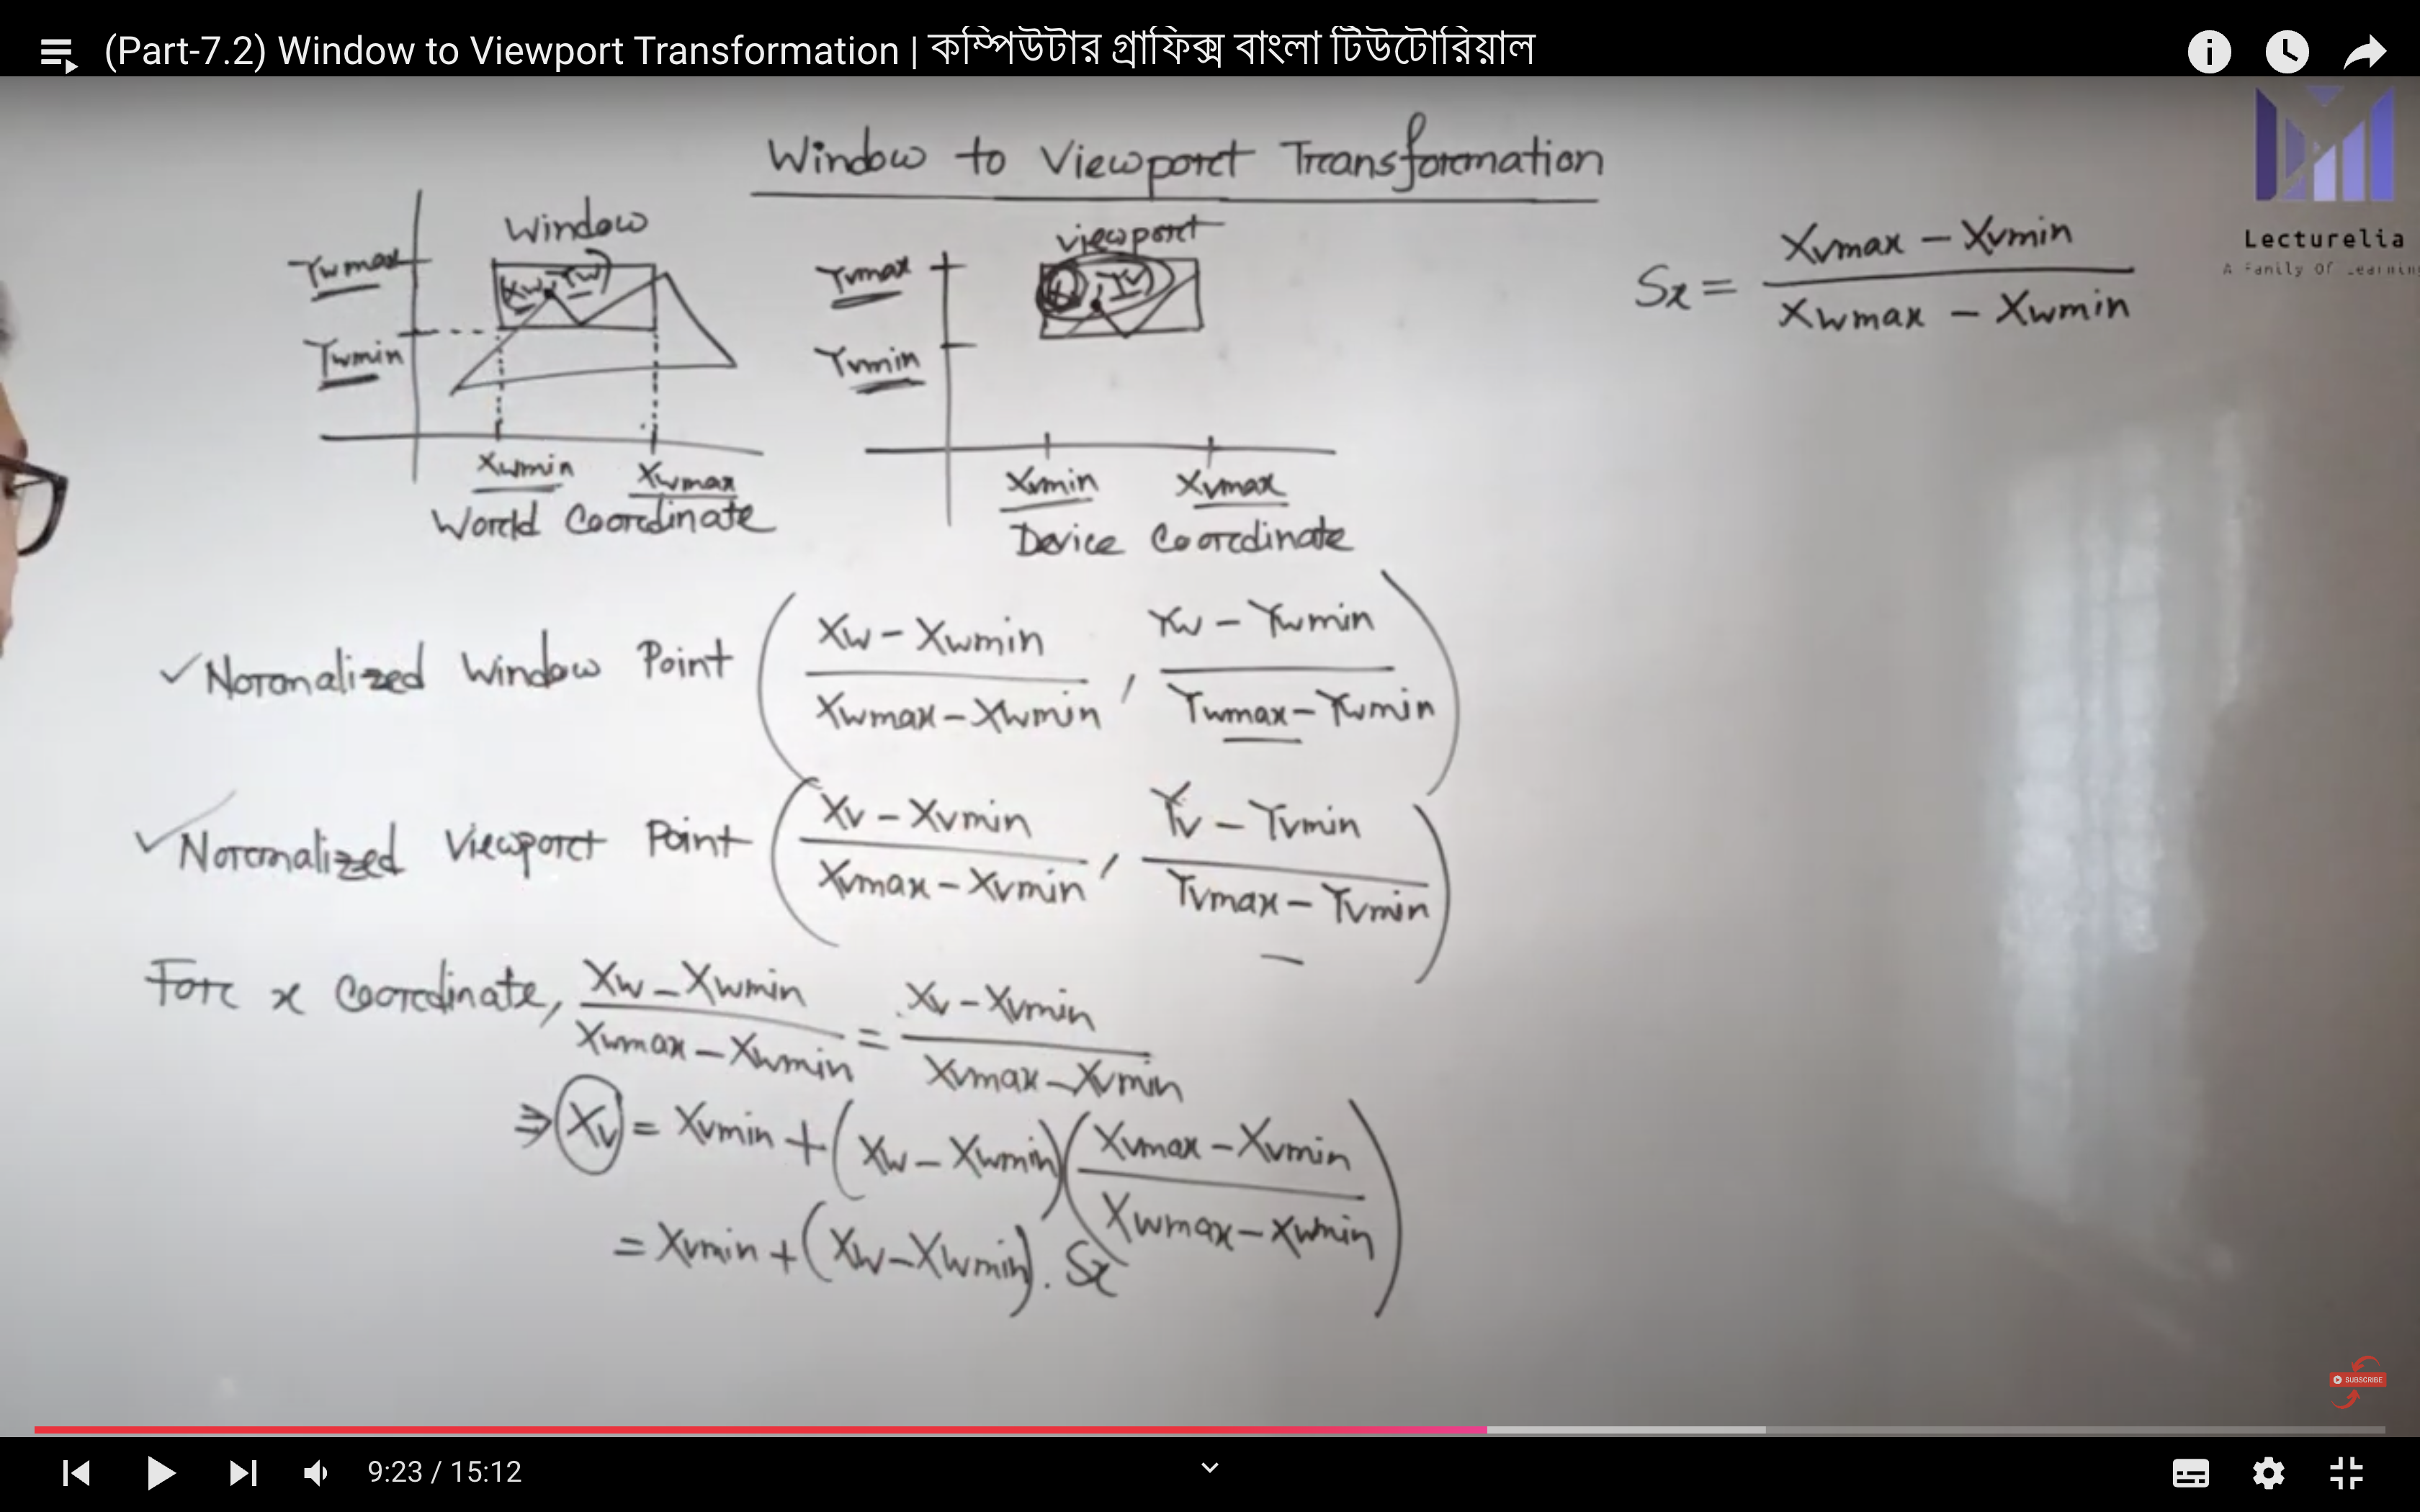 (Part-7.2) Window to Viewport Transformation | কম্পিউটার গ্রাফিক্স বাংলা টিউটোরিয়াল
Window to Viewport Transformation
Lecturelia
A Family Of Learning
Window
Ywmax
Ywmin
(Xw, Yw)
Xwmin
Xwmax
World Coordinate
viewport
Yvmax
Yvmin
Yv)
Xvmin
Xvmax
Device Coordinate
Sx = (Xvmax - Xvmin) / (Xwmax - Xwmin)
✓ Normalized Window Point ( (Xw - Xwmin) / (Xwmax - Xwmin) , (Yw - Ywmin) / (Ywmax - Ywmin) )
✓ Normalized Viewport Point ( (Xv - Xvmin) / (Xvmax - Xvmin) , (Yv - Yvmin) / (Yvmax - Yvmin) )
For x Coordinate, (Xw - Xwmin) / (Xwmax - Xwmin) = (Xv - Xvmin) / (Xvmax - Xvmin)
⇒ Xv = Xvmin + (Xw - Xwmin) ( (Xvmax - Xvmin) / (Xwmax - Xwmin) )
= Xvmin + (Xw - Xwmin) . Sx
SUBSCRIBE
9:23 / 15:12